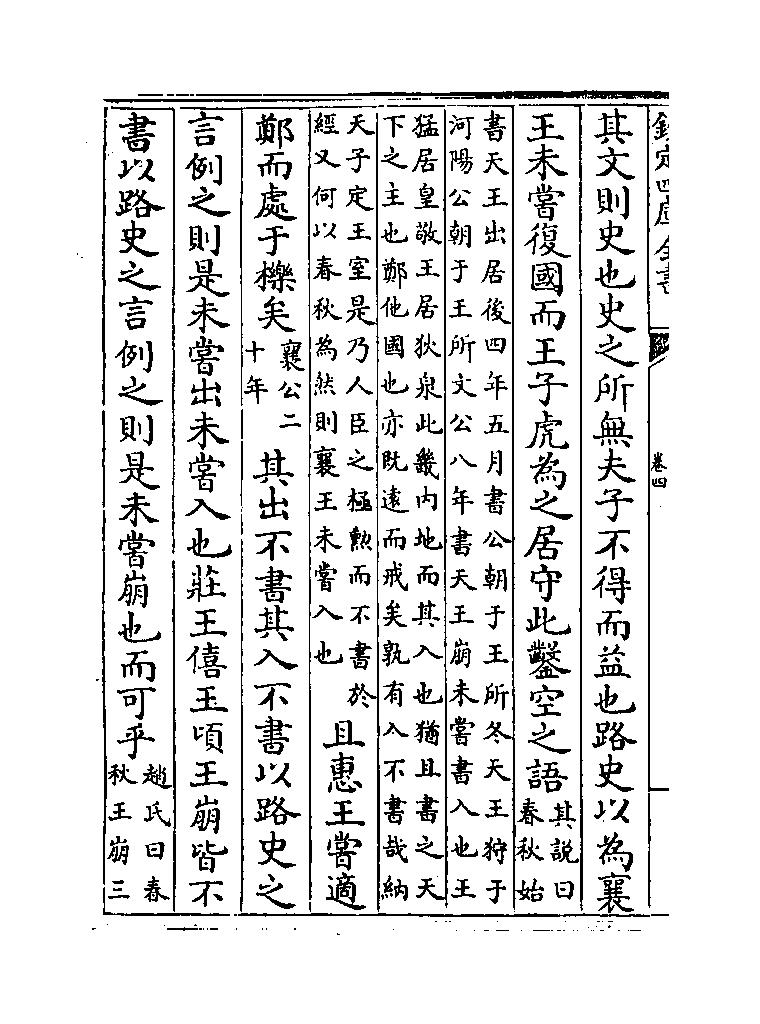 欽定四庫全書
卷四
其文則史也史之所無夫子不得而益也路史以為襄
王未嘗復國而王子虎為之居守此鑿空之語其說曰
春秋始
書天王出居後四年五月書公朝于王所冬天王狩于
河陽公朝于王所文公八年書天王崩未嘗書入也王
猛居皇敬王居狄泉此畿内地而其入也猶且書之天
下之主也鄭他國也亦既遠而戒矣孰有入不書哉納
天子定王室是乃人臣之極勲而不書於
經又何以春秋為然則襄王未嘗入也
且惠王嘗適
鄭而處于櫟矣襄公二
十年
其出不書其入不書以路史之
言例之則是未嘗出未嘗入也莊王僖王頃王崩皆不
書以路史之言例之則是未嘗崩也而可乎趙氏曰春
秋王崩三